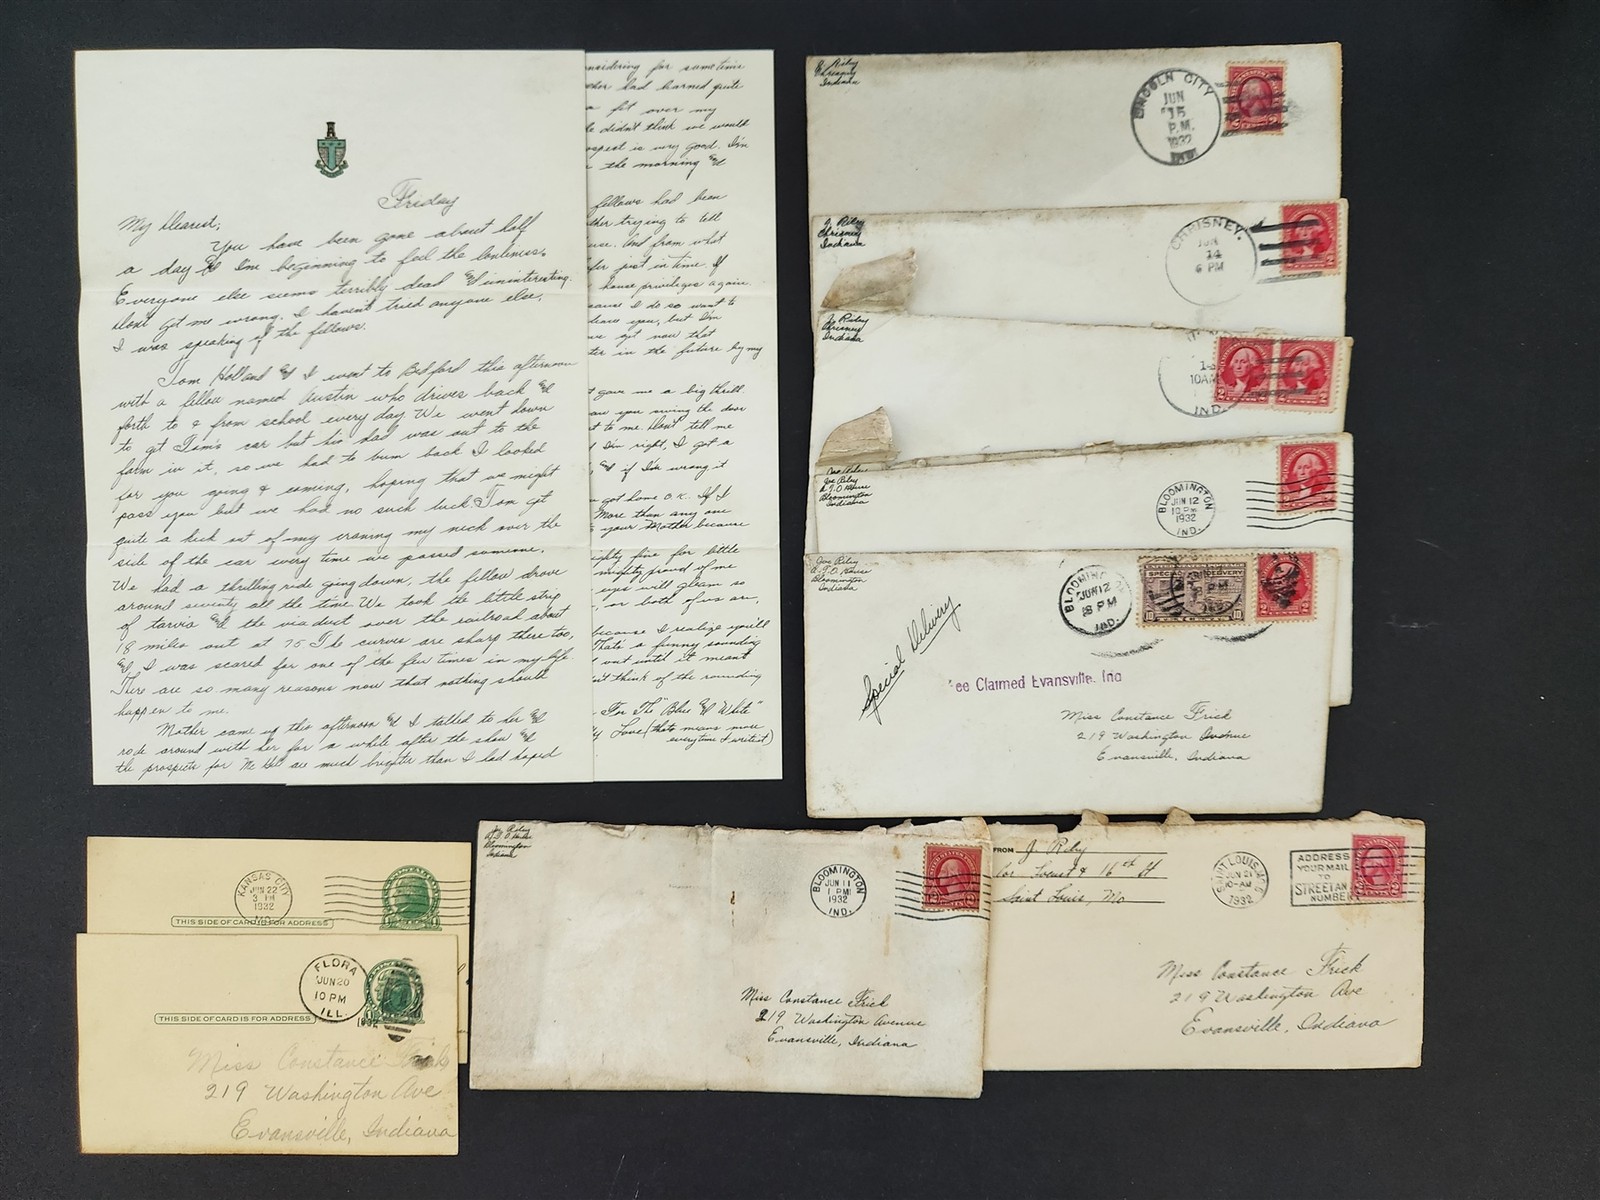 Friday
My Dearest;
You have been gone about half
a day & I'm beginning to feel the lonliness.
Everyone else seems terribly dead & uninteresting.
Don't get me wrong. I haven't tried anyone else,
I was speaking of the fellows.
Tom Holland & I went to Bedford this afternoon
with a fellow named Austin who drives back &
forth to & from school every day. We went down
to get Tom's car but his dad was out to the
farm in it, so we had to bum back. I looked
for you going & coming, hoping that we might
pass you but we had no such luck. Tom got
quite a kick out of my craning my neck over the
side of the car every time we passed someone.
We had a thrilling ride going down, the fellow drove
around seventy all the time. We took the little strip
of tarvia & the via duct over the railroad about
18 miles out at 75. The curves are sharp there too,
&, I was scared for one of the few times in my life.
There are so many reasons now that nothing should
happen to me.
Mother came up this afternoon & I talked to her &
rode around with her for a while after the show &
the prospects for are much brighter than I had hoped
nsidering for sometime
had learned quite
a fit over my
didn't think we would
ospect is very good. I'm
the morning &
fellows had been
ther trying to tell
use. And from what
fer just in time. If
house privileges again.
cause I do so want to
you, but I'm
we got now that
ter in the future by my
t gave me a big thrill.
you the door
t to me. Don't tell me
I'm right, I got a
& if I'm wrong it
got home O.K. If I
More than any one
your Mother because
ighty fine for little
mighty proud of me
eyes will gleam so
, or both of us are,
because I realize you'll
That's a funny sounding
out until it meant
n't think of the rounding
For The "Blue & White"
y Love (thats means more
everytime I write it)
Riley
Chrisney
Indiana
LINCOLN CITY
JUN
15
P.M.
1932
IND
J. Riley
Chrisney
Indiana
CHRISNEY.
JUN
14
6 PM
J. Riley
Chrisney
Indiana
10AM
IND.
Joe Riley
A.T.O House
Bloomington
Indiana
BLOOMINGTON
JUN 12
10 PM
1932
IND.
Joe Riley
A.T.O. House
Bloomington
Indiana
BLOOMIN
JUN 12
8 PM
IND.
SPECIAL DELIVERY
Special Delivery
ee Claimed Evansville, Ind
Miss Constance Frick
219 Washington Avenue
Evansville, Indiana
KANSAS CITY
JUN 22
1932
THIS SIDE OF CARD IS FOR ADDRESS
FLORA
JUN 20
10 PM
ILL.
1932
THIS SIDE OF CARD IS FOR ADDRESS
Miss Constance Frick
219 Washington Ave
Evansville, Indiana
Joe Riley
A.T.O. House
Bloomington
Indiana
BLOOMINGTON
JUN 11
1 PM
1932
IND.
Miss Constance Frick
219 Washington Avenue
Evansville, Indiana
FROM J. Riley
Cor Locust & 16th St
Saint Louis, Mo
SAINT LOUIS, MO.
JUN 21
10-AM
1932
ADDRESS
YOUR MAIL
TO
STREET AN
NUMBER
Miss Constance Frick
219 Washington Ave
Evansville, Indiana